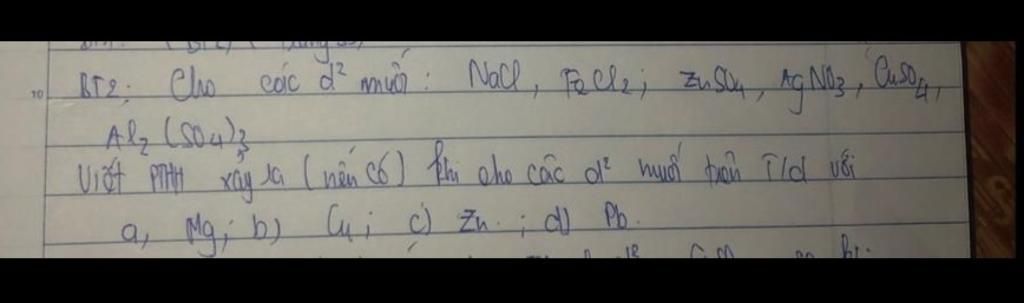 BT2: Cho các d² muối: NaCl, FeCl2; ZnSO4, AgNO3, CuSO4,
Al2(SO4)3
Viết PTHH xảy ra (nếu có) khi cho các d² muối trên T/d với
a, Mg; b) Cu; c) Zn.; d) Pb.